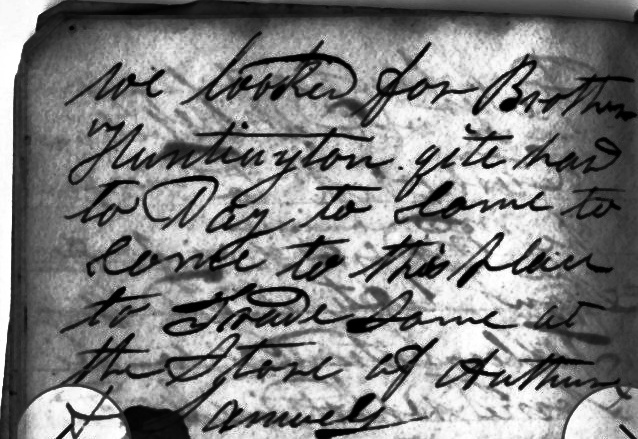 we looked for Brother
Huntington qite had
to Day to Come to
Come to this place
to Trade Some at
the Store of